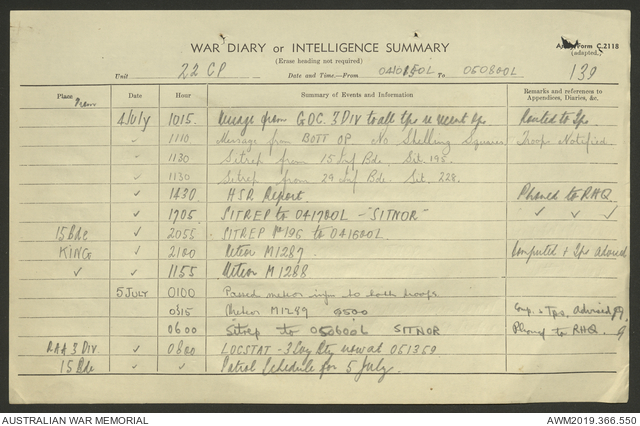 WAR DIARY or INTELLIGENCE SUMMARY
Army Form C.2118
(Erase heading not required)
(adapted)
Unit 22 CP Date and Time.—From 041050L to 050800L 139
Place Date Hour Summary of Events and Information Remarks and references to Appendices, Diaries, &c.
4 July 1015. Message from GOC. 3 DIV to all tps re recent Ops Routed to Tps
✓ 1110 Message from BOTT OP. No Shelling Troop Notified.
✓ 1130 Sitrep from 15 Inf Bde. Sit. 195.
✓ 1130 Sitrep from 29 Inf Bde. Sit. 228.
✓ 1430 HSR Report Phoned to RHQ.
✓ 1705 SITREP to 041700L - "SITNOR" ✓ ✓ ✓
15 Bde ✓ 2055 SITREP No 196 to 041600L
KING ✓ 2100 Meteor M1287 Computed + Tps advised
✓ ✓ 1155 Meteor M1288
5 JULY 0100 Passed meteor info to both troops.
0315 Meteor M1289 0500 Comp. & Tps. Advised
0600 Sitrep to 050600L SITNOR Phoned to RHQ.
RAA 3 DIV ✓ 0800 LOCSTAT - 3 Svy Bty now at 051359
15 Bde ✓ ✓ Patrol Schedule for 5 July.
AUSTRALIAN WAR MEMORIAL AWM2019.366.550